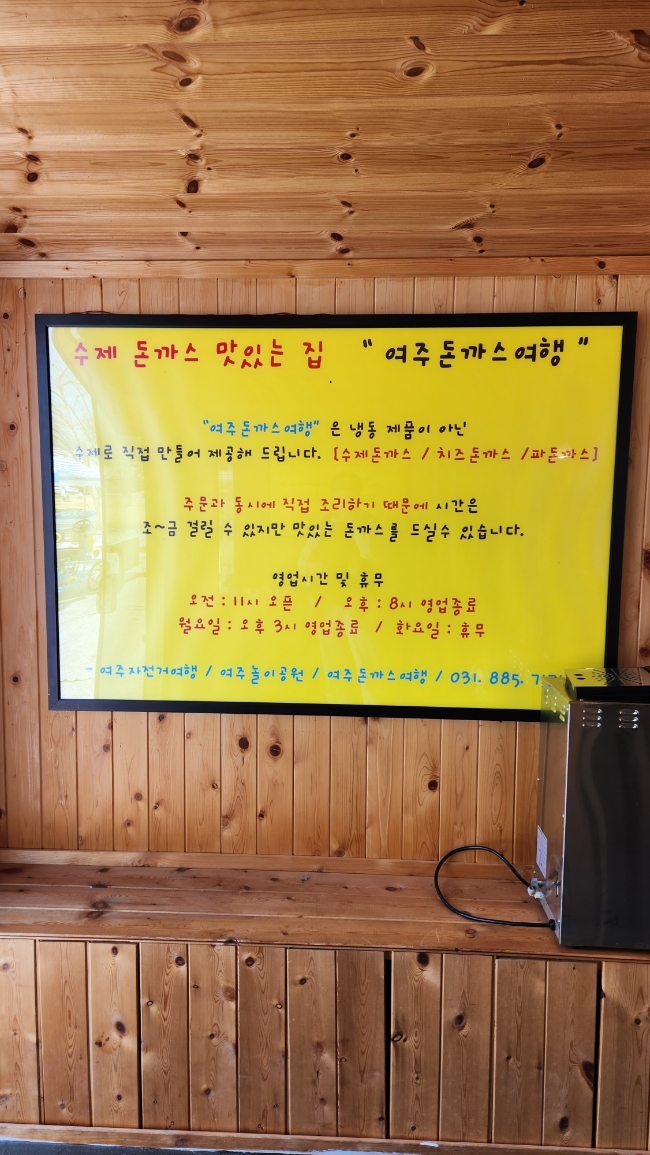 수제 돈까스 맛있는 집 " 여주돈까스여행 "
"여주돈까스여행" 은 냉동 제품이 아닌
수제로 직접 만들어 제공해 드립니다. [수제돈까스 / 치즈돈까스 /파돈까스]
주문과 동시에 직접 조리하기 때문에 시간은
조~금 걸릴 수 있지만 맛있는 돈까스를 드실수 있습니다.
영업시간 및 휴무
오전 : 11시 오픈 / 오후 : 8시 영업종료
월요일 : 오후 3시 영업종료 / 화요일 : 휴무
- 여주자전거여행 / 여주놀이공원 / 여주돈까스여행 / 031. 885.